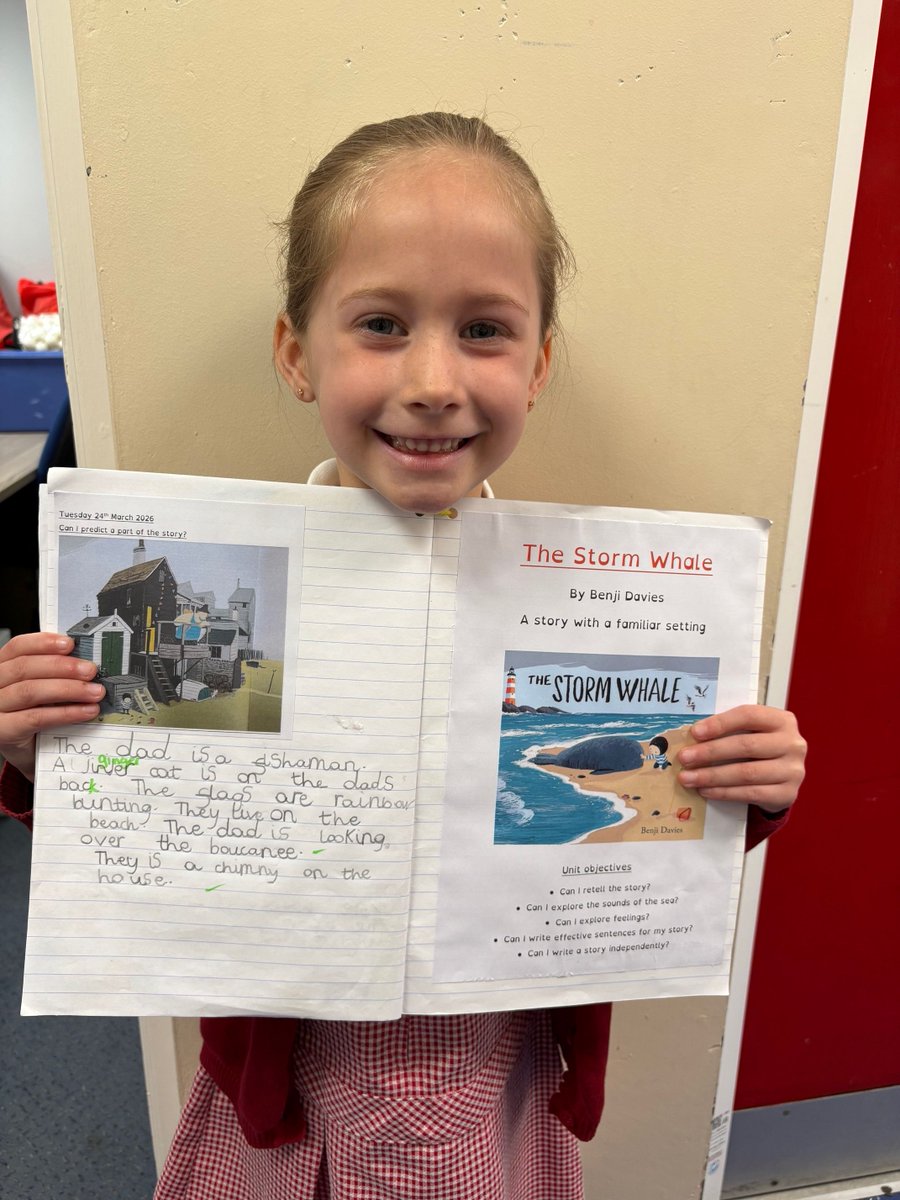 Tuesday 24th March 2026
Can I predict a part of the story?
The dad is a Shaman.
ginger
A Jinver cat is on the dads
back The glags are rainbow
bunting. They live on the
beach. The dad is looking
over the boucanee.
They is a chimny on the
house.
The Storm Whale
By Benji Davies
A story with a familiar setting
THE STORM WHALE
Benji Davies
Unit objectives
• Can I retell the story?
• Can I explore the sounds of the sea?
• Can I explore feelings?
• Can I write effective sentences for my story?
• Can I write a story independently?